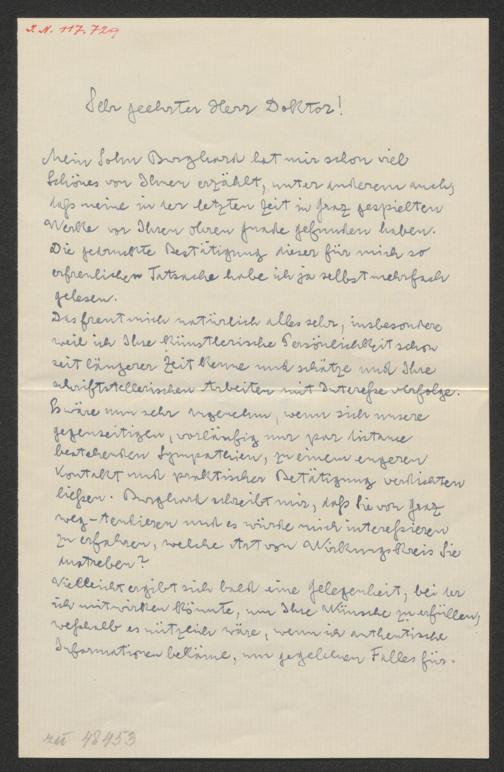 I.N. 117.729
Sehr geehrter Herr Doktor!
Mein Sohn Burghard hat mir schon viel
Schönes von Ihnen erzählt, unter anderem auch,
daß meine in der letzten Zeit in Graz gespielten
Werke vor Ihren Ohren Gnade gefunden haben.
Die gedruckte Bestätigung dieser für mich so
erfreulichen Tatsache habe ich ja selbst mehrfach
gelesen.
Das freut mich natürlich alles sehr, insbesondere
weil ich Ihre künstlerische Persönlichkeit schon
seit längerer Zeit kenne und schätze und Ihre
schriftstellerischen Arbeiten mit Interesse verfolge.
Es wäre nun sehr angenehm, wenn sich unsere
gegenseitigen, vorläufig nur par distance
bestehenden Sympathien, zu einem engeren
Kontakt und praktischer Betätigung verdichten
ließen. Burghard schreibt mir, daß Sie von Graz
weg-tendieren und es würde mich interessieren
zu erfahren, welche Art von Wirkungskreis Sie
anstreben?
Vielleicht ergibt sich bald eine Gelegenheit, bei der
ich mitwirken könnte, um Ihre Wünsche zu erfüllen,
weshalb es nützlich wäre, wenn ich authentische
Informationen bekäme, um gegebenen Falles für.
zu 48453